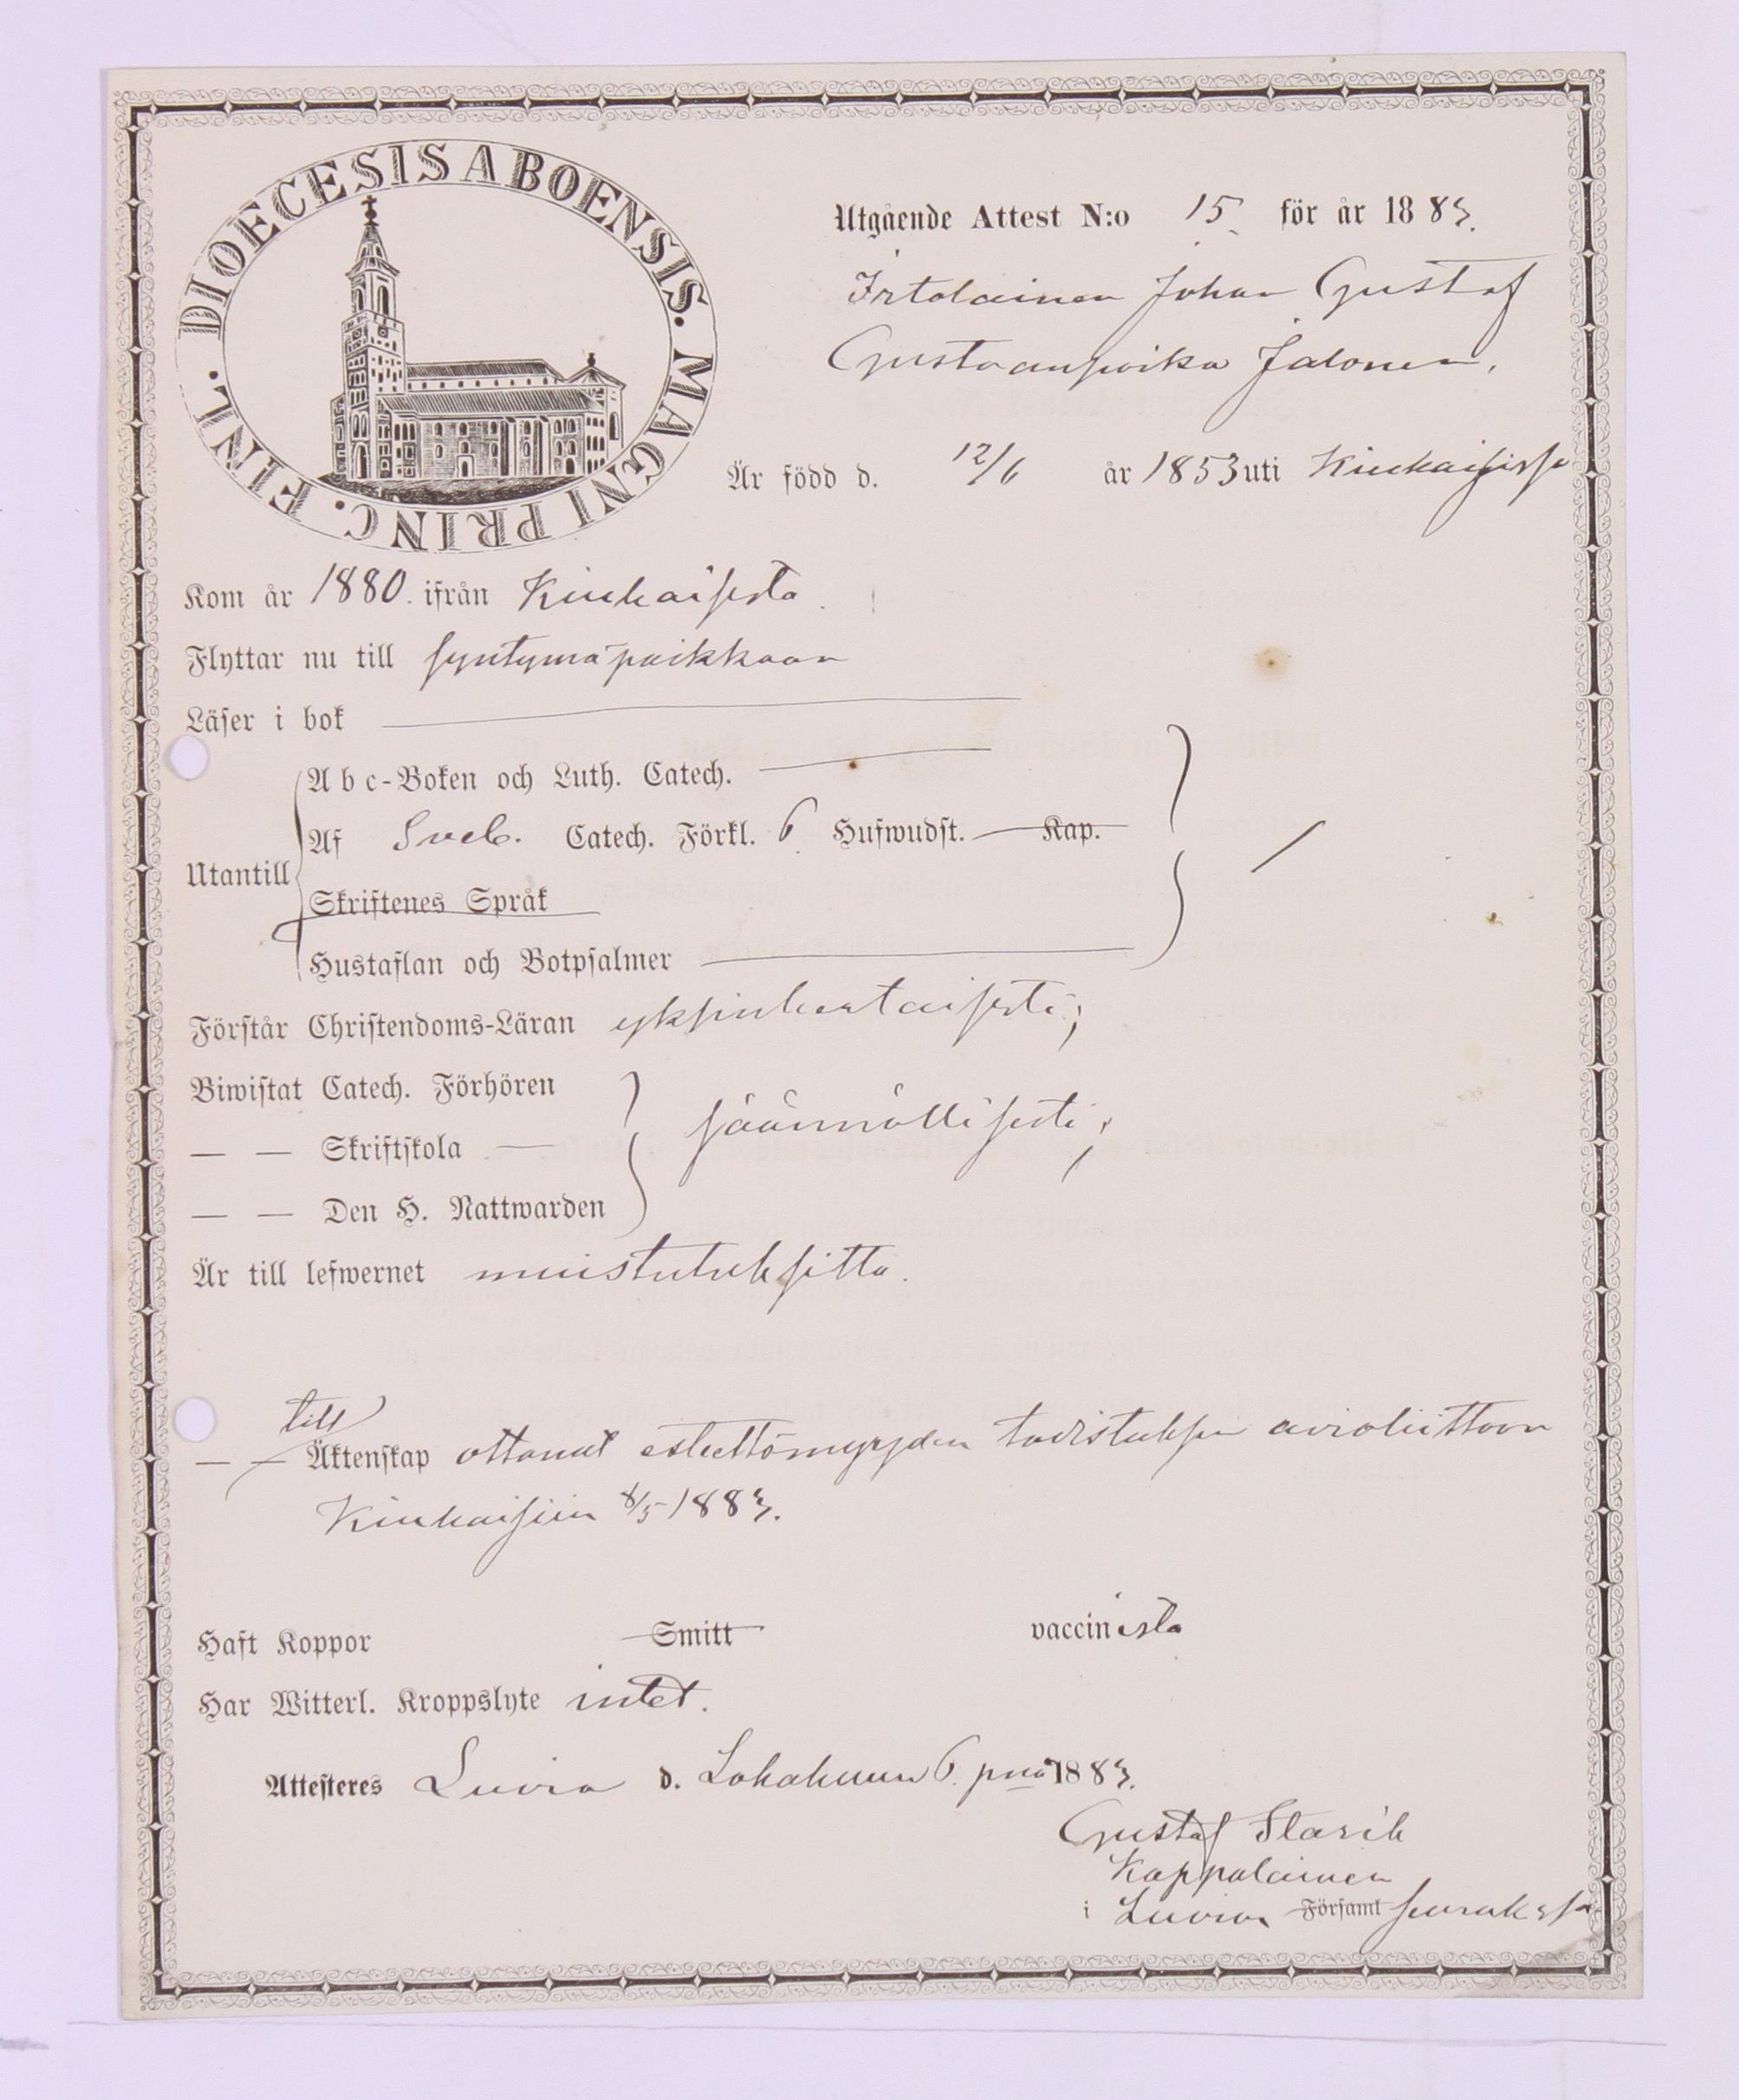 DIOECESIS ABOENSIS. MAGNI PRINC. FINL.
Utgående Attest N:o 15 för år 1883.
Irtolainen Johan Gustaf
Gustaanpoika Jalonen,
Är född d. 12/6 år 1853 uti Kiukaisissa
Kom år 1880. ifrån Kiukaisista.
Flyttar nu till syntymäpaikkaan
Läser i bok
Utantill
Abc-Boken och Luth. Catech.
Af Sveb. Catech. Förkl. 6 Hufwudst. Kap.
Skriftenes Språk
Hustaflan och Botpsalmer
Förstår Christendoms-Läran yksinkertaisesti;
Biwistat Catech. Förhören
— — Skriftskola — säännöllisesti;
— — Den H. Nattwarden
Är till lefwernet muistutuksitta.
till
— — Äktenskap ottanut esteettömyyden todistuksen avioliittoon
Kiukaisiin 8/5 1883.
Haft Koppor Smitt vaccinista
Har Witterl. Kroppslyte intet.
Attesteres Luvia d. Lokakuun 6. pnä 1883.
Gustaf
Kappalainen
i Luvian Församl seurakssa